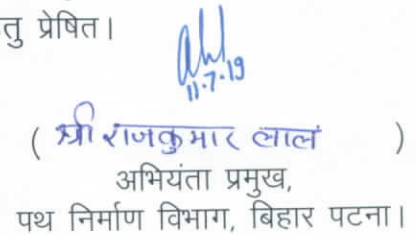 तु प्रेषित।
11.7.19
( श्री राजकुमार लाल )
अभियंता प्रमुख,
पथ निर्माण विभाग, बिहार पटना।